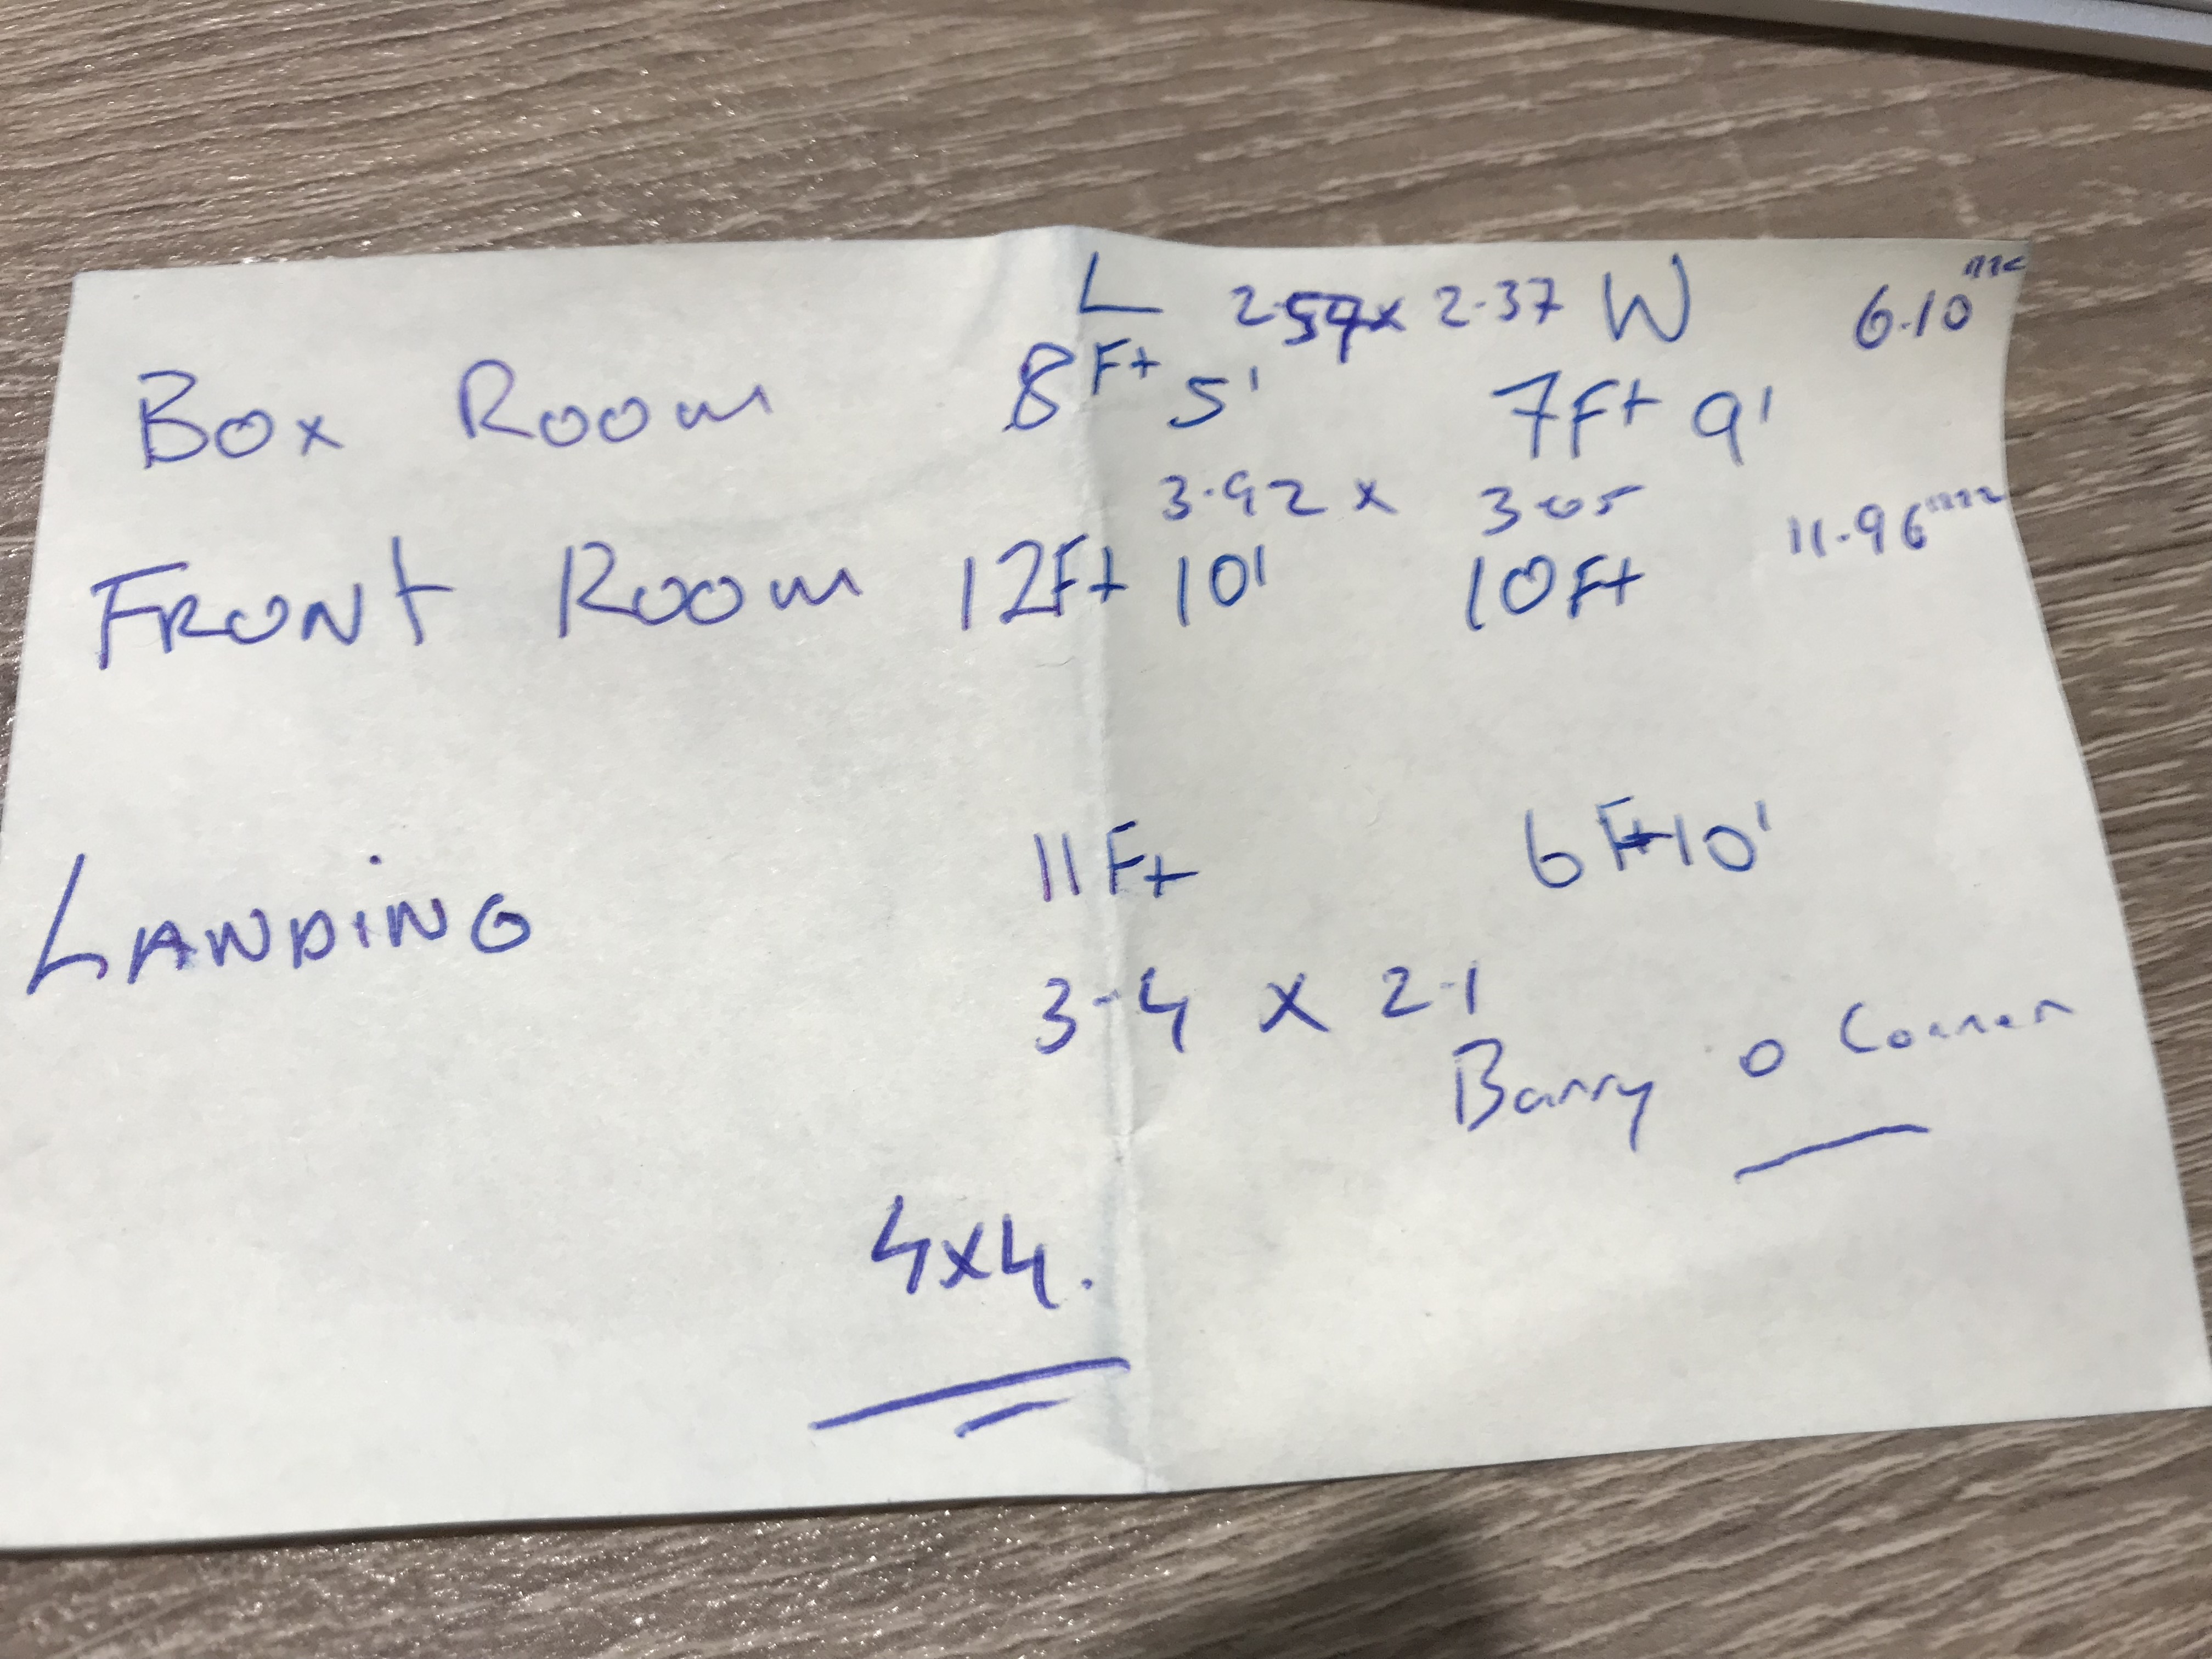 L 2.57 x 2.37 W 6.10
Box Room 8Ft 5' 7Ft 9'
3.92 x 3.05
FRONt Room 12Ft 10' 10Ft 11.96
11Ft 6Ft 10'
LANDING
3.4 x 2.1
Barry o Connor
4x4.